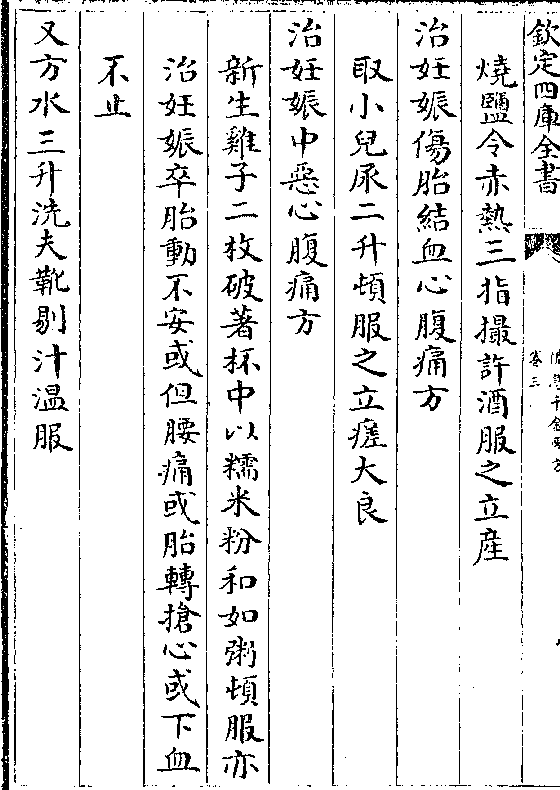 欽定四庫全書
卷三
燒鹽令赤熱三指撮許酒服之立産
治妊娠傷胎結血心腹痛方
取小兒尿二升頓服之立瘥大良
治妊娠中惡心腹痛方
新生雞子二枚破著杯中以糯米粉和如粥頓服亦
治妊娠卒胎動不安或但腰痛或胎轉搶心或下血
不止
又方水三升洗夫靴剔汁溫服